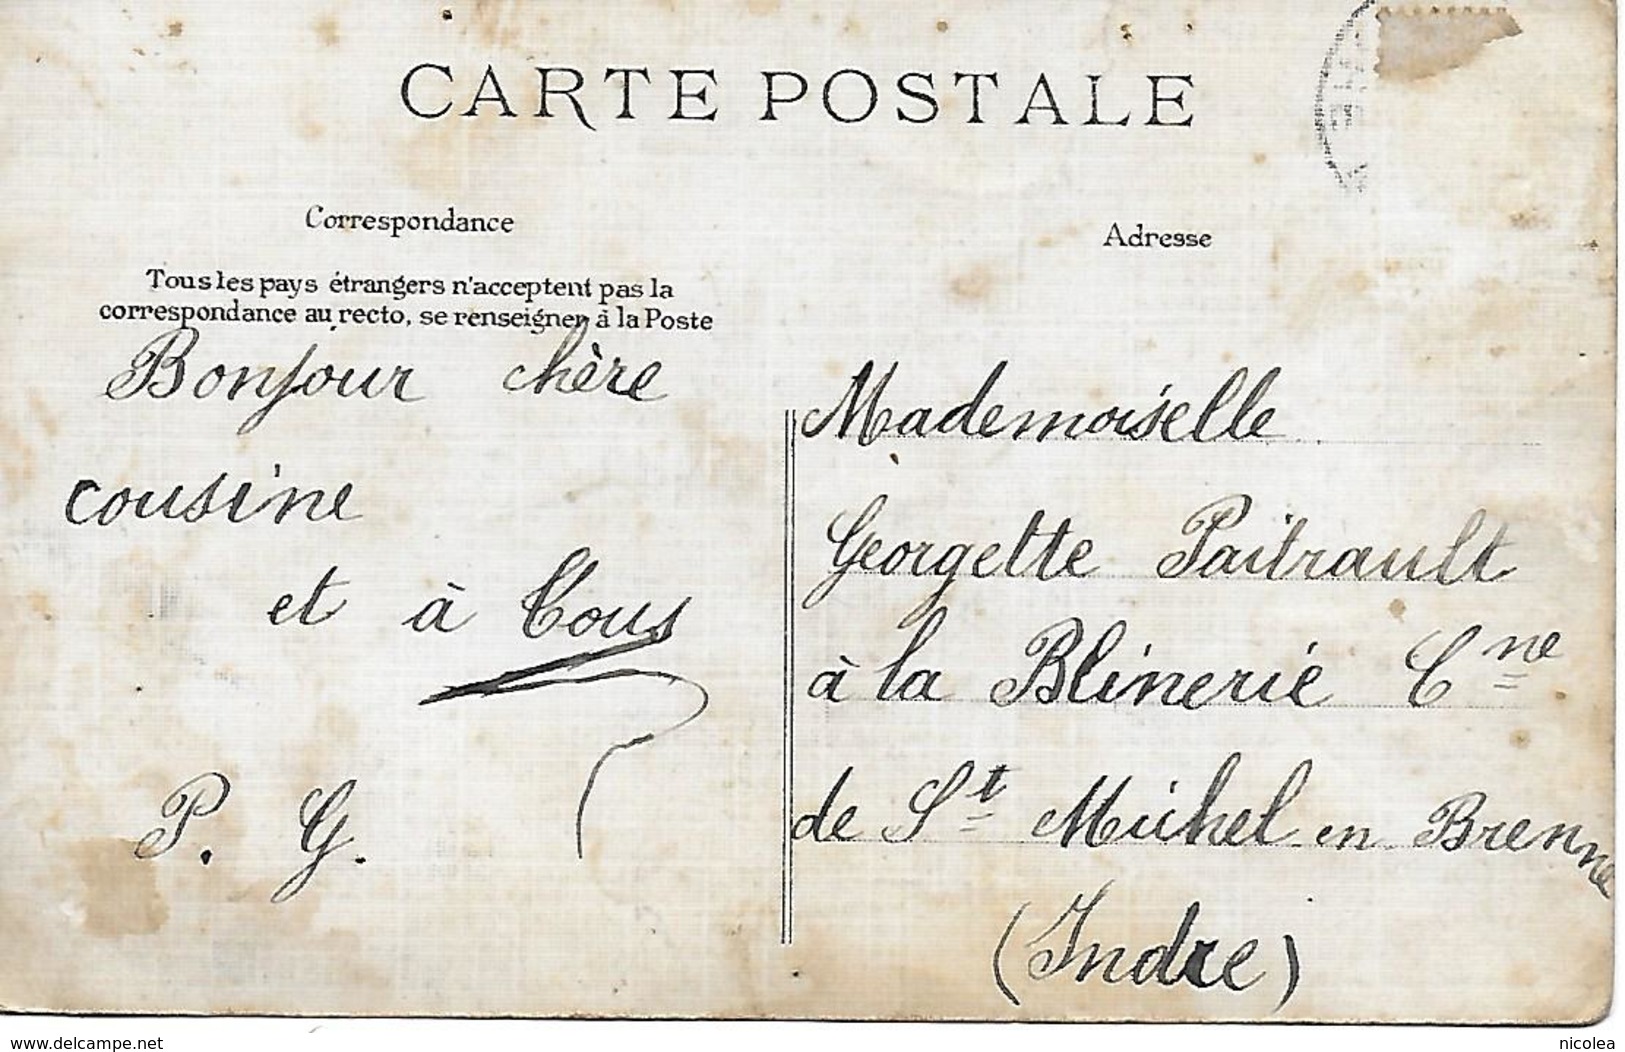 CARTE POSTALE
Correspondance
Tous les pays étrangers n'acceptent pas la
correspondance au recto, se renseigner à la Poste
Bonjour chère
cousine
et à Tous
P. G.
Adresse
Mademoiselle
Georgette Paitrault
à la Blinerie Cne
de St Michel en Brenne
(Indre)
delcampe.net
nicolea